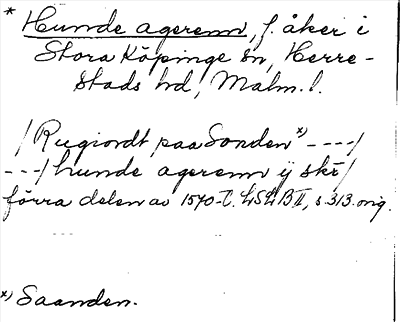 * Hunde ageren, f. åker i
Stora Köpinge sn, Herre-
stads hd, Malm. l.
/Rugiordt paa Sonden *) ----/
---/hunde ageren ij skr/
förra delen av 1570-t. LSLB II, s. 313. orig.
*) Saanden.